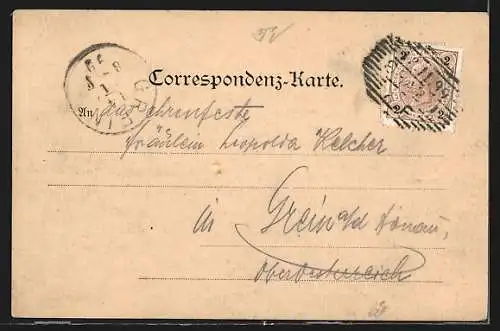 Correspondenz-Karte.
An das ehrenfeste
Fräulein Leopolda Kelcher
in
Grein a/d Donau,
Oberösterreich
2
2
2